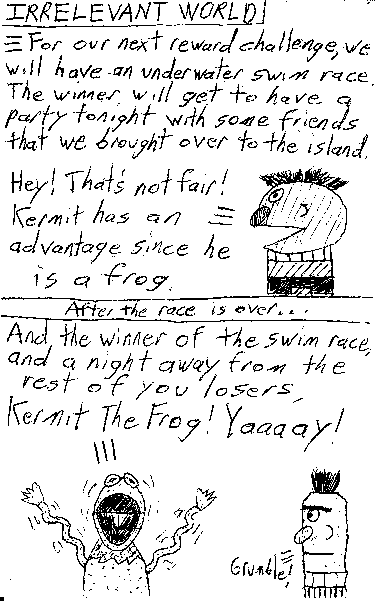 IRRELEVANT WORLD
For our next reward challenge, we
will have an underwater swim race.
The winner will get to have a
party tonight with some friends
that we brought over to the island.
Hey! That's not fair!
Kermit has an
advantage since he
is a frog.
After the race is over...
And, the winner of the swim race,
and a night away from the
rest of you losers,
Kermit The Frog! Yaaaay!
Grumble!